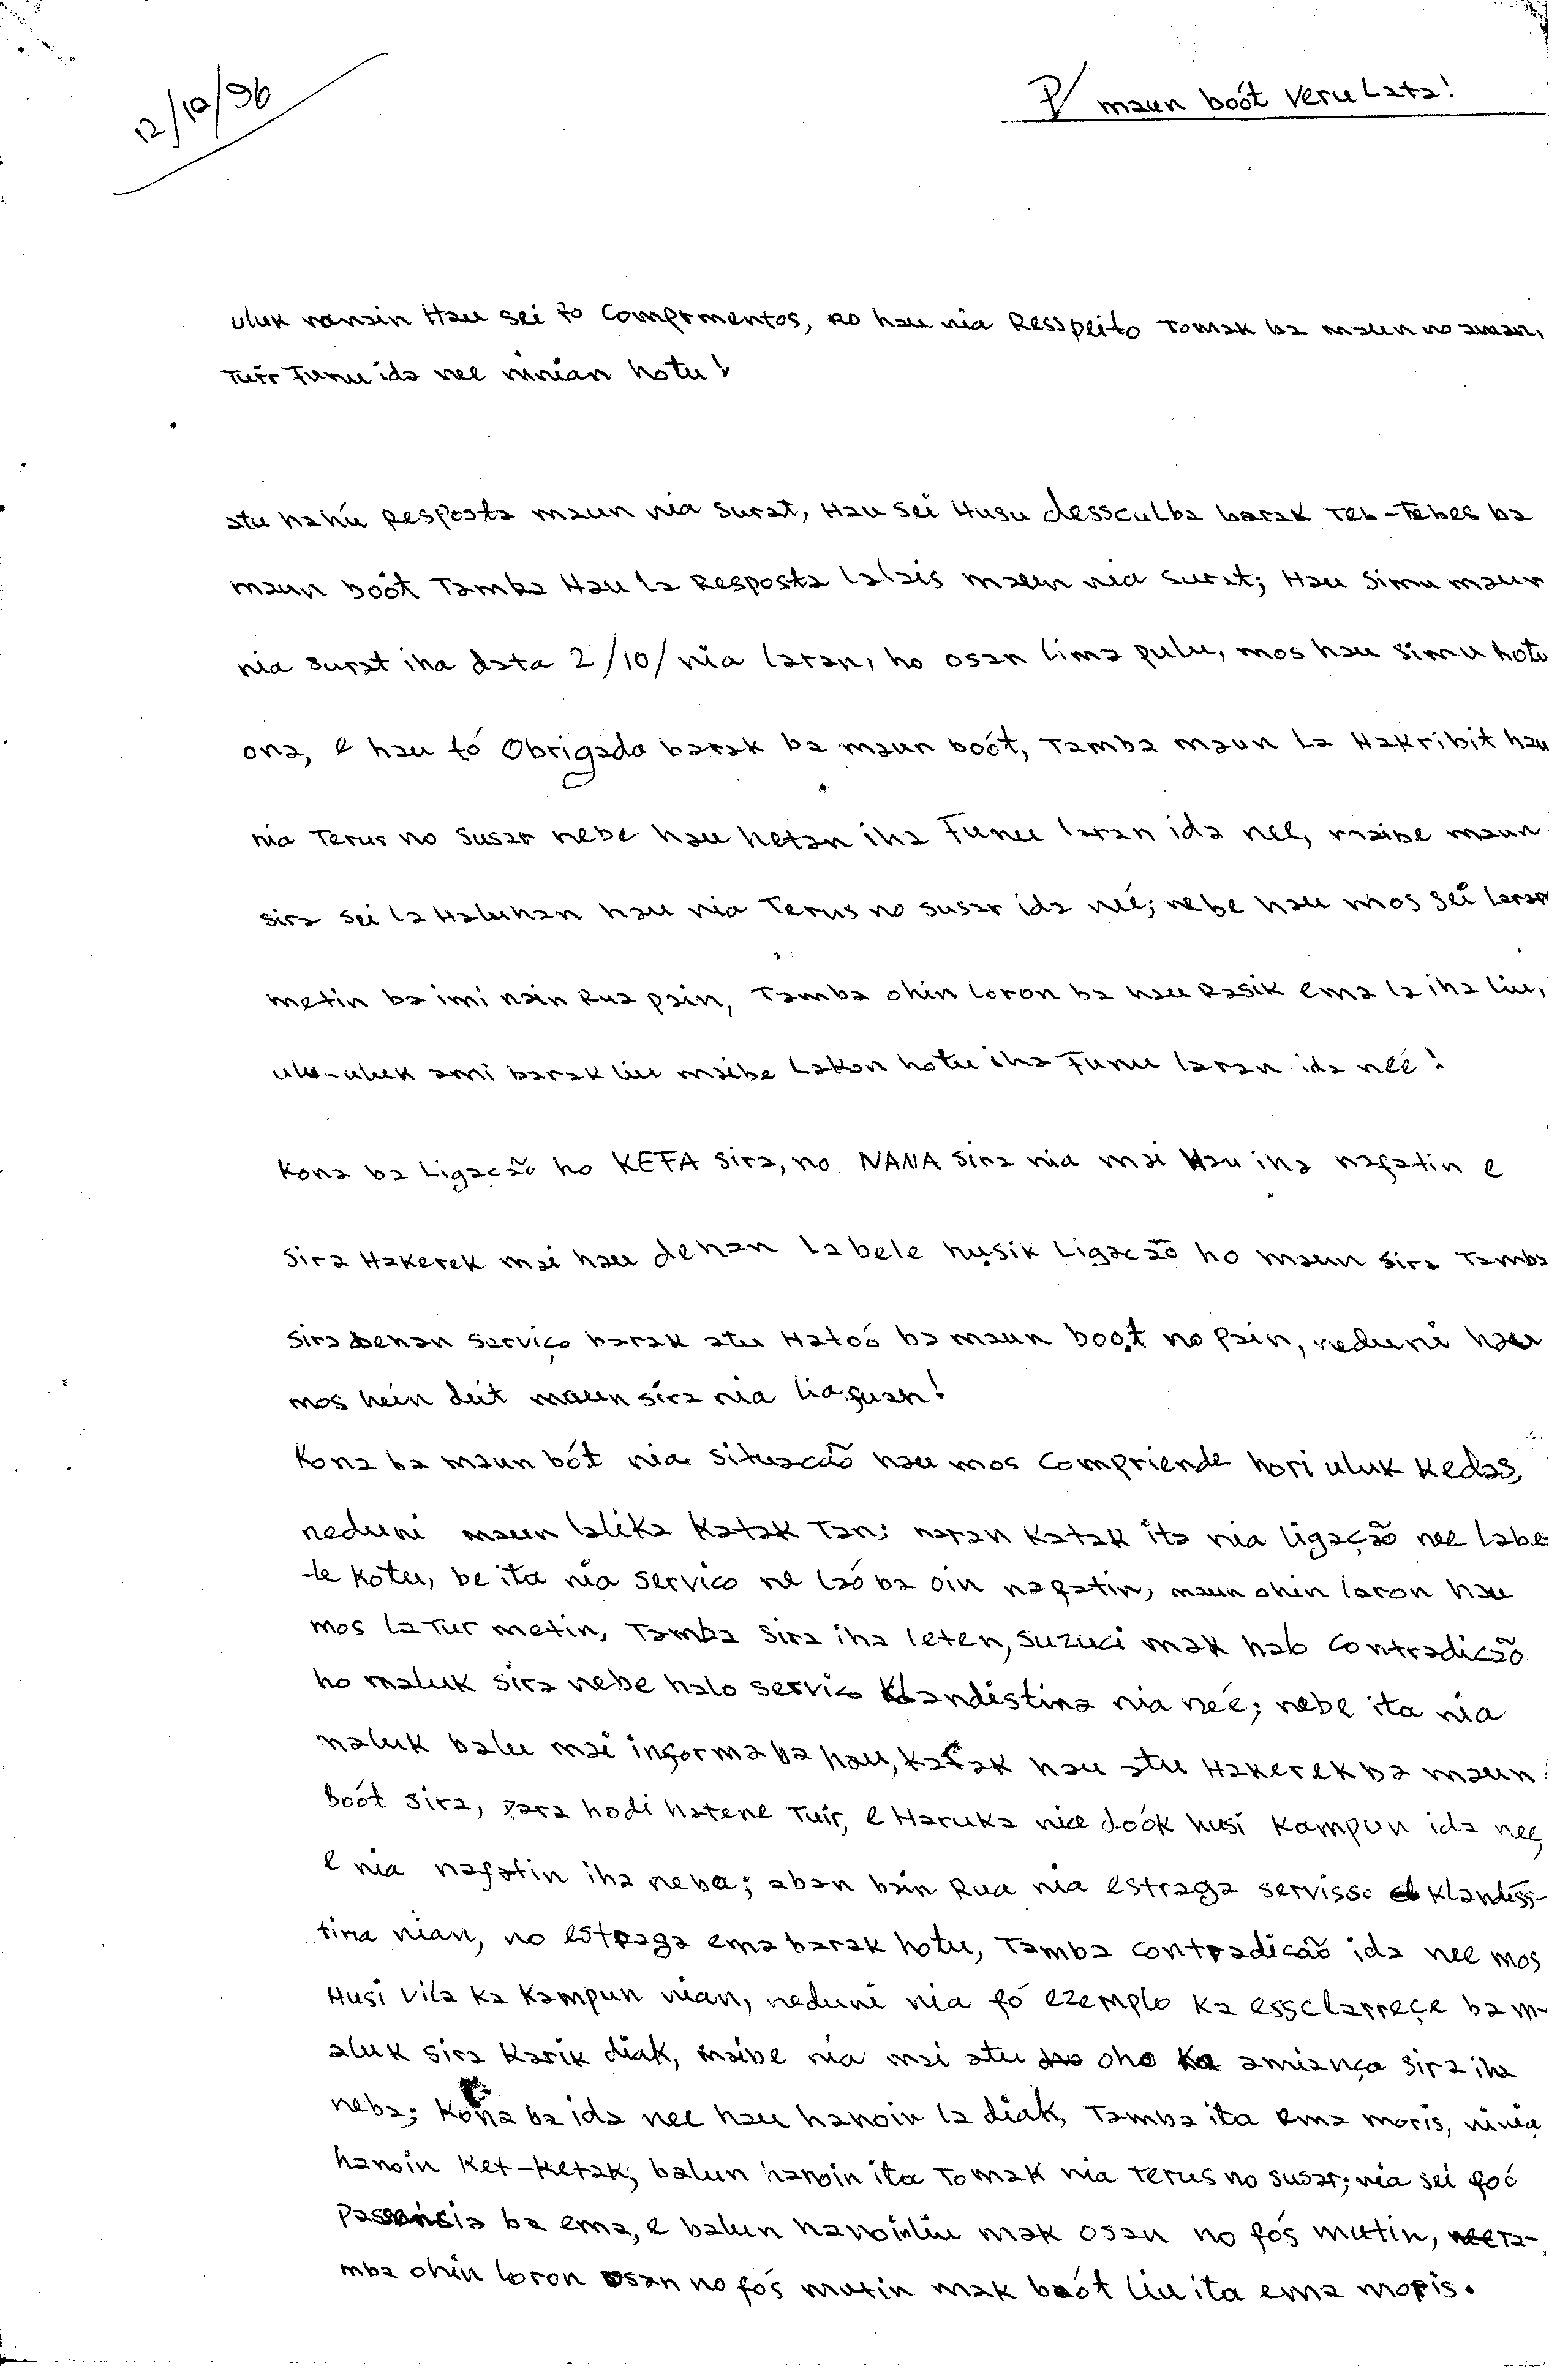 12/10/96
P/ maun boót Veru Lata!
uluk nanain Hau sei fó Comprmentos, no hau nia Resspeito Tomak ba maun no aman,
Tuir Funu ida nee ninian hotu!
atu hahú Resposta maun nia surat, Hau sei Husu dessculba barak Teb-Tebes ba
maun boót Tamba Hau la Resposta lalais maun nia surat; Hau simu maun
nia surat iha data 2/10/ nia laran, ho osan lima pulu, mos hau simu hotu
ona, e hau fó Obrigado barak ba maun boót, Tamba maun la Hakribit hau
nia Terus no susar nebe hau hetan iha Funu laran ida nee, maibe maun
sira sei la Haluhan hau nia Terus no susar ida neé; nebe hau mos sei laran
metin ba imi nain Rua pain, Tamba ohin loron ba hau Rasik ema la iha liu,
ulu-uluk ami barak liu maibe Lakon hotu iha Funu laran ida neé!
Kona ba Ligacão ho KEFA sira, no NANA sira nia mai Hau iha nafatin e
sira Hakerek mai hau dehan la bele husik Ligacão ho maun sira Tamba
sira dehan serviço barak atu Hatoó ba maun boot no pain, neduni hau
mos hein deit maun sira nia liafuan!
Kona ba maun bót nia situacão hau mos compriende hori uluk kedas,
neduni maun lalika Katak Tan; natan Katak ita nia ligação nee labe
-le Kotu, be ita nia servico ne laó ba oin nafatin, maun ohin loron hau
mos la Tur metin, Tamba sira iha leten, suzuci mak halo contradicão
ho maluk sira nebe halo servico Klandistina nia neé; nebe ita nia
maluk balu mai informa ba hau, katak hau atu Hakerek ba maun
boót sira, para hodi hatene Tuir, e Haruka nia doók husi kampun ida nee,
e nia nafatin iha neba; aban bain Rua nia estraga servisso Klandiss-
tina nian, no estraga ema barak hotu, Tamba contradicão ida nee mos
Husi Vila ka Kampun nian, neduni nia fó ezemplo ka essclarreçe ba m-
aluk sira karik diak, maibe nia mai atu oho ka amiança sira iha
neba; Kona ba ida nee hau hanoin la diak, Tamba ita ema moris, ninia
hanoin Ket-Ketak; balun hanoin ita Tomak nia terus no susar; nia sei foó
passensia ba ema, e balun hanoinliu mak osan no fós mutin, Ta-
mba ohin loron osan no fós mutin mak boót liu ita ema moris.